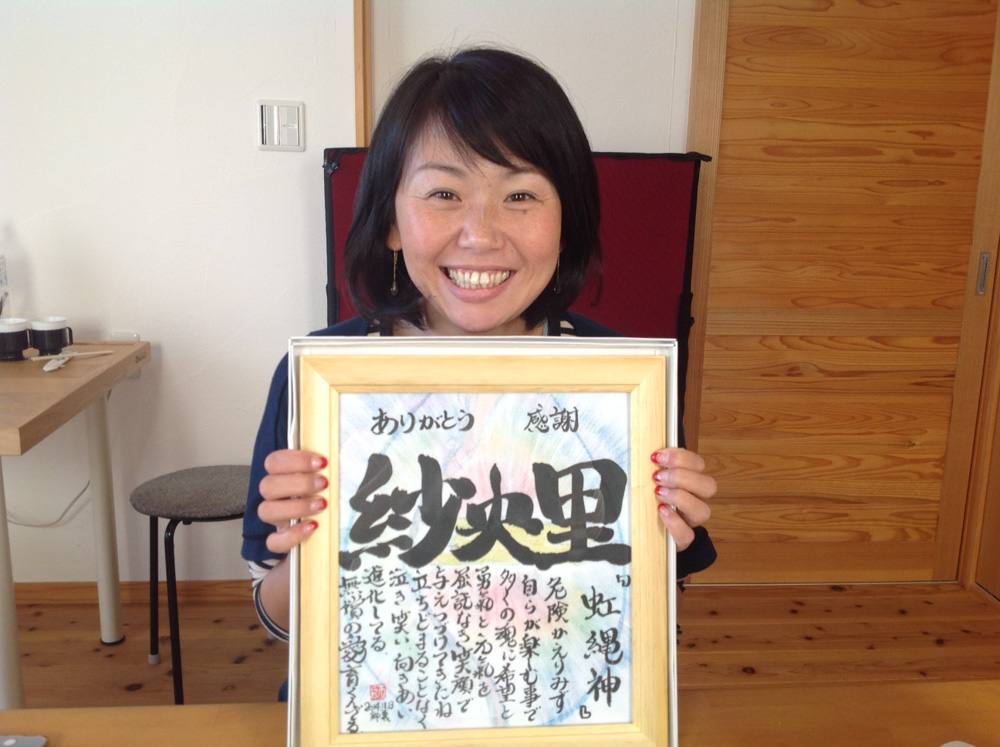 ありがとう 感謝
紗央里
『虹縄神』
危険かえりみず
自らが楽しむ事で
多くの魂に希望と
勇氣と元氣を
屈託なき笑顔で
与えつづけてきたね
立ちどまることなく
泣き笑い向きあい
進化してる
無償の愛育くんでる